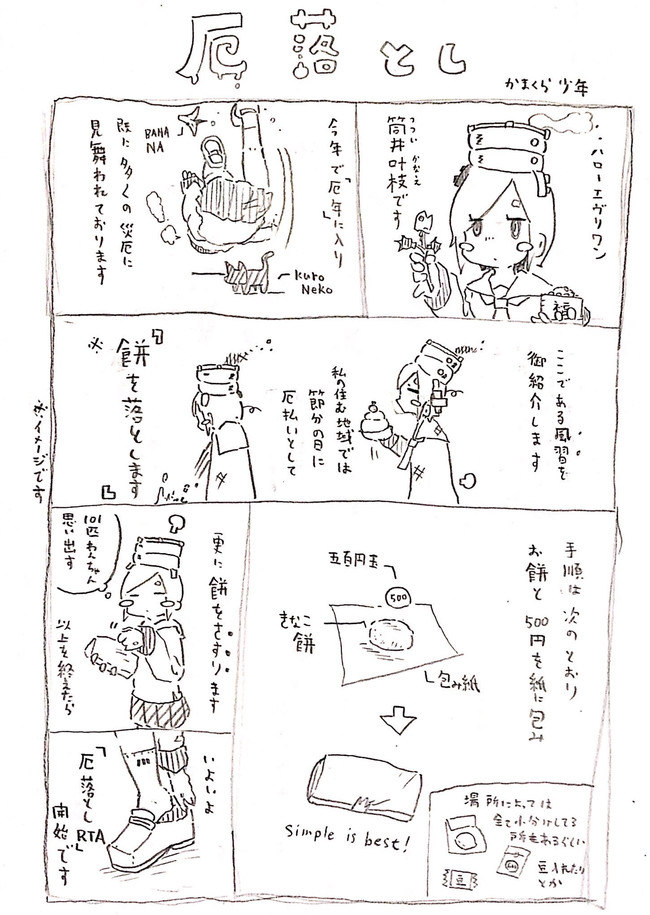 厄落とし
かまくら少年
ハローエヴリワン
筒井叶枝です
つつい かなえ
福
今年で「厄年」に入り
既に多くの災厄に
見舞われております
BANA
NA
kuro
Neko
ここである風習を
御紹介します
私の住む地域では
節分の日に
厄払いとして
「餅を落とします」
※
※イメージです
手順は次のとおり
お餅と500円を紙に包み
五百円玉
500
きなこ
餅
包み紙
Simple is best!
場所によっては
全て小分けしてる
所もあるらしい
豆入れたり
とか
豆
更に餅をさすります
101匹わんちゃん
思い出す
以上を終えたら
いよいよ
「厄落としRTA」
開始です